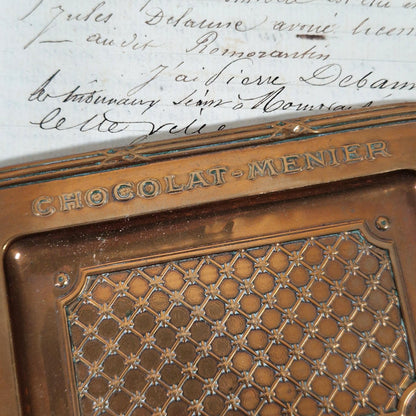 Jules Delaune avoué licen
— audit Romorantin
J'ai Pierre Debam
les tribunaux
cette ville
CHOCOLAT-MENIER